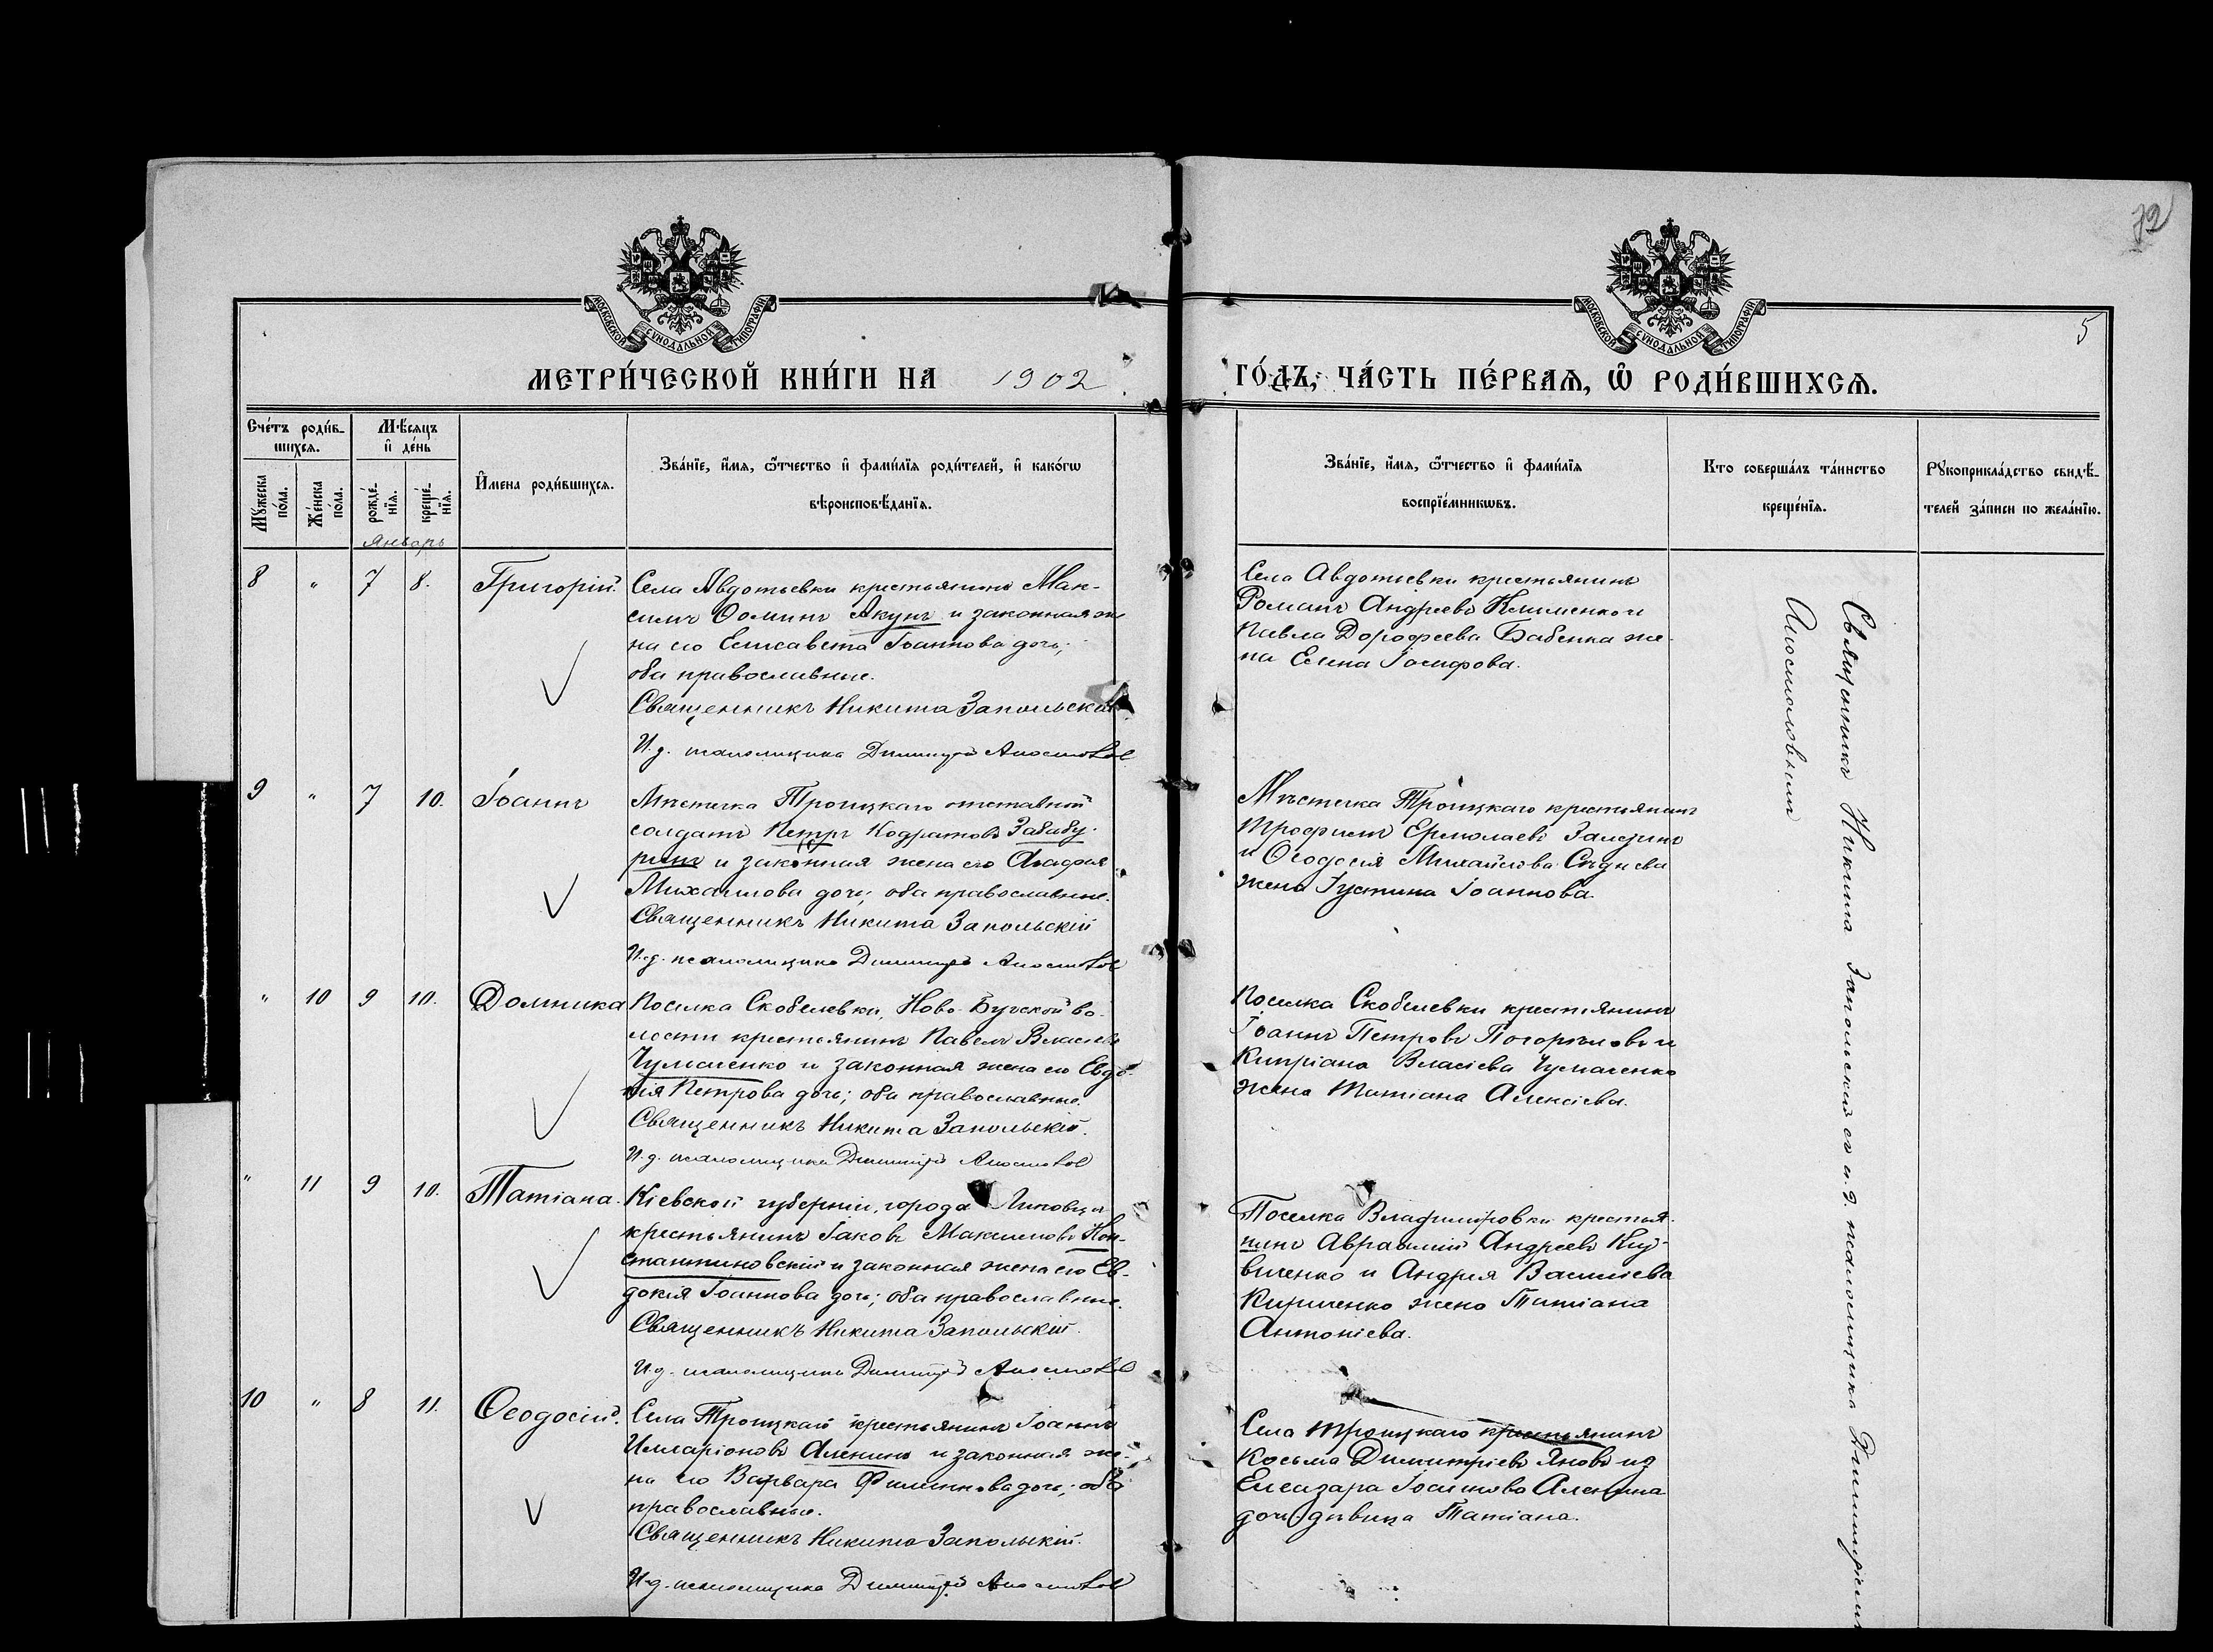 72
5
МОСКОВСКОЙ СѴНОДАЛЬНОЙ ТИПОГРАФІИ
МОСКОВСКОЙ СѴНОДАЛЬНОЙ ТИПОГРАФІИ
МЕТРИ́ЧЕСКОЙ КНИ́ГИ НА 1902
ГО́ДЪ, ЧА́СТЬ ПЕ́РВАѦ, Ѡ҆ РОДИ́ВШИХСѦ.
Сче́тъ роди́в-
шихсѧ.
Мѣ́сяцъ
и҆ де́нь
Мꙋ́жеска
по́ла.
Же́нска
по́ла.
рожде́-
нїѧ.
креще́-
нїѧ.
И҆мена роди́вшихсѧ.
Зва́нїе, и҆́мѧ, ѻ҆́тчество и҆ фами́лїѧ роди́телей, и҆ како́гѡ
вѣроисповѣ́данїѧ.
Зва́нїе, и҆́мѧ, ѻ҆́тчество и҆ фами́лїѧ
воспрїе́мникѡвъ.
Кто соверша́лъ та́инство
креще́нїѧ.
Рꙋкоприкла́дство свидѣ́-
телей за́писи по жела́нїю.
Январь
8 " 7 8. Григорій.
Села Авдотьевки крестьянинъ Мак-
симъ Ѳоминъ Акунъ и законная же
на его Елисавета Іоаннова дочь;
оба православные.
Священникъ Никита Запольскій
И.д. псаломщика Димитрій Апостолов
Села Авдотьевки крестьянинъ
Романъ Андреевъ Клименко и
Павла Дорофеева Бабенка же-
на Елена Іосифова.
9 " 7 10. Іоаннъ
Мѣстечка Троицкаго отставной
солдатъ Петръ Кодратовъ Забабу-
ринъ и законная жена его Агафия
Михаилова дочь; оба православные.
Священникъ Никита Запольскій
И.д. псаломщика Димитрій Апостолов
Мѣстечка Троицкаго крестьянинъ
Трофимъ Ермолаевъ
и Ѳеодосія Михайлова
жена Іустина Іоаннова.
" 10 9 10. Домника
Поселка Скобелевки, Ново-Бугской во-
лости крестьянинъ Павелъ Власіевъ
Чумаченко и законная жена его Евдо-
кія Петрова дочь; оба православные.
Священникъ Никита Запольскій.
И.д. псаломщика Димитрій Апостолов
Поселка Скобелевки крестьянинъ
Іоаннъ Петровъ Погорѣловъ и
Кипріана Власіева Чумаченко
жена Татіана Алексіева.
" 11 9 10. Татіана.
Кіевской губерніи, города Липовца
крестьянинъ Іаковъ Максимовъ Кон-
стантиновскій и законная жена его Ев-
докія Іоаннова дочь; оба православные.
Священникъ Никита Запольскій.
И.д. псаломщика Димитрій Апостолов
Поселка Владиміровки крестья-
нинъ Авраамій Андреевъ
и Андрея Василіева
Кириченко жена Татіана
Антоніева.
10 " 8 11. Ѳеодосій.
Села Троицкаго крестьянинъ Іоаннъ
Илларіоновъ Аленинъ и законная же-
на его Варвара Филиппова дочь; оба
православные.
Священникъ Никита Запольскій.
И.д. псаломщика Димитрій Апостолов
Села Троицкаго крестьянинъ
Косьма Димитріевъ Яновъ из
Елеазара Аленина
дочь дѣвица Татіана.
Священникъ Никита Запольскій съ и.д. псаломщика Димитріемъ
Апостоловымъ